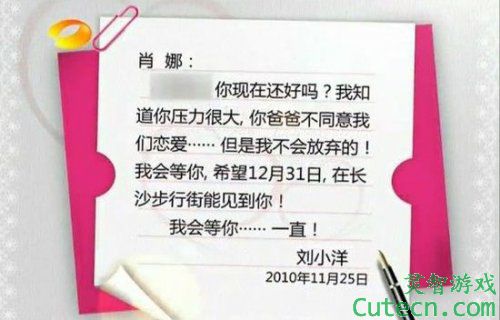 肖 娜：
你现在还好吗？我知
道你压力很大, 你爸爸不同意我
们恋爱…… 但是我不会放弃的！
我会等你, 希望12月31日, 在长
沙步行街能见到你！
我会等你…… 一直！
刘小洋
2010年11月25日
莫智游戏
Cutecn.com